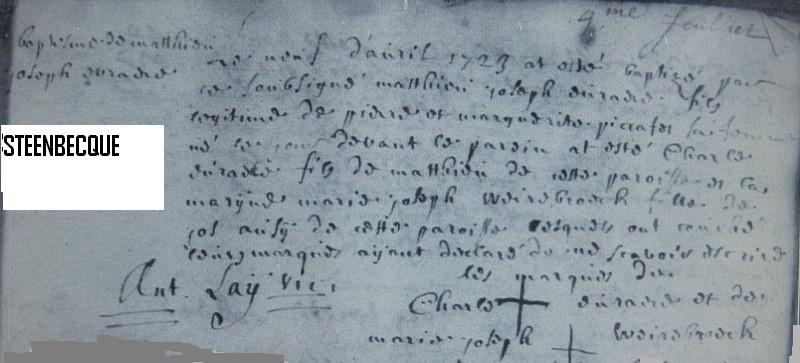 4me feulliet
baptesme de matthieu
joseph euradre
STEENBECQUE
Le neuf d'auril 1723 at esté baptizé par
ce soubsigné matthieu joseph euradre fils
legitime de pierre et marguerite piccafet sa femme
né ce jour devant le parein at esté Charle
euradre fils de matthieu de cette paroisse et la
maryne marie joseph Weirebroeck fille de
jos ausÿ de cette paroisse lesquels ont
leurs marques ayant declaré de ne scavoir escrire
les marques de
Ant. Laÿ Vic.
Charle euradre et de
marie joseph Weirebroeck